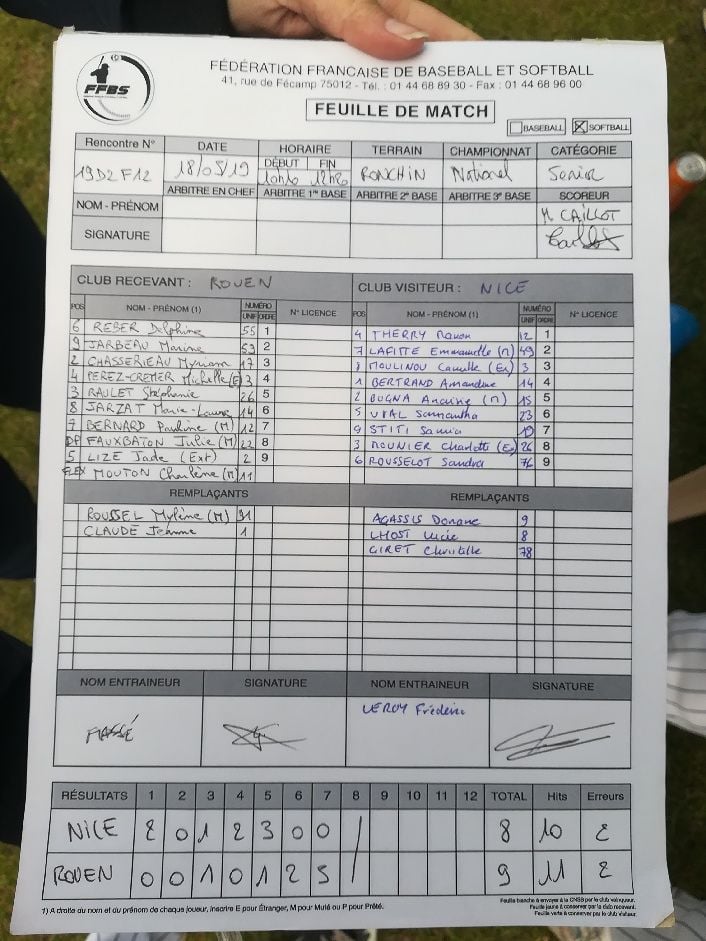 FFBS
FÉDÉRATION FRANCAISE DE BASEBALL ET SOFTBALL
41, rue de Fécamp 75012 - Tél. : 01 44 68 89 30 - Fax : 01 44 68 96 00
FEUILLE DE MATCH
BASEBALL SOFTBALL
Rencontre N° DATE HORAIRE TERRAIN CHAMPIONNAT CATÉGORIE
DÉBUT FIN
19D2F12 18/05/19 RONCHIN National Senior
ARBITRE EN CHEF ARBITRE 1re BASE ARBITRE 2e BASE ARBITRE 3e BASE SCOREUR
NOM - PRÉNOM M CAILLOT
SIGNATURE
CLUB RECEVANT : ROUEN CLUB VISITEUR : NICE
POS NOM - PRÉNOM (1) NUMÉRO UNIF ORDRE N° LICENCE POS NOM - PRÉNOM (1) NUMÉRO UNIF ORDRE N° LICENCE
6 REBER Delphine 55 1 4 THERRY Manon 12 1
9 JARBEAU Marine 53 2 7 LAFITTE Emmanuelle (M) 49 2
2 CHASSERIEAU Myriam 17 3 8 MOULINOU Camille (Ex) 3 3
4 PEREZ-CREMER Michelle (E) 3 4 1 BERTRAND Amandine 14 4
3 RAULET Stéphanie 26 5 2 BUGNA (M) 15 5
8 JARZAT Marie-Laure 14 6 5 VIAL Samantha 23 6
7 BERNARD Pauline (M) 12 7 9 STITI Samia 19 7
DP FAUXBATON Julie (M) 22 8 3 MOUNIER Charlotte (Ex) 26 8
5 LIZE Jade (Ext) 2 9 6 ROUSSELOT Sandra 76 9
FLEX MOUTON Charlène (M) 11
REMPLAÇANTS REMPLAÇANTS
ROUSSEL Mylène (M) 91 AGASSIS Doriane 9
CLAUDE Jeanne 1 LHOST Lucie 8
GIRET Christelle 78
NOM ENTRAINEUR SIGNATURE NOM ENTRAINEUR SIGNATURE
MASSÉ LEROY Frédéric
RÉSULTATS 1 2 3 4 5 6 7 8 9 10 11 12 TOTAL Hits Erreurs
NICE 2 0 1 2 3 0 0 / 8 10 2
ROUEN 0 0 1 0 1 2 5 / 9 11 2
1) A droite du nom et du prénom de chaque joueur, inscrire E pour Étranger, M pour Muté ou P pour Prêté.
Feuille blanche à envoyer à la CNSB par le club vainqueur.
Feuille jaune à conserver par le club recevant.
Feuille verte à conserver par le club visiteur.